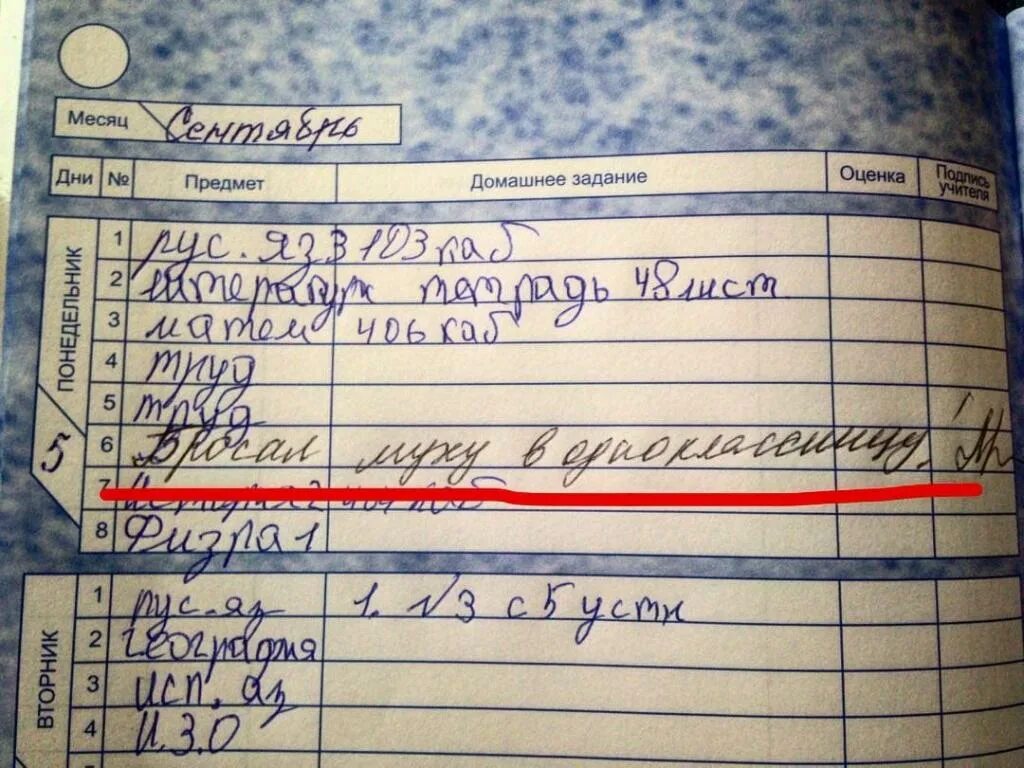 Месяц Сентябрь
Дни № Предмет Домашнее задание Оценка Подпись учителя
ПОНЕДЕЛЬНИК
5
1 рус. яз 3 103 каб
2 литератур тетрадь 48 лист
3 матем 406 каб
4 труд
5 труд
6 Бросал муху в одноклассницу!
7 каб
8 Физра 1
ВТОРНИК
1 рус. яз 1. √3 с 5 устн
2 география
3 исп. яз
4 И.З.О